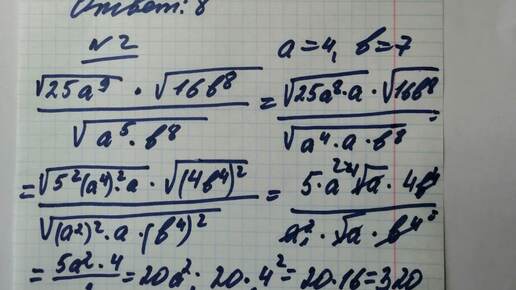 Ответ: 8
№2 a=4, b=7
(√(25a⁹) · √(16b⁸)) / √(a⁵·b⁸) = (√(25a⁸·a) · √(16b⁸)) / √(a⁴·a·b⁸) =
= (√(5²(a⁴)²·a) · √((4b⁴)²)) / √((a²)²·a·(b⁴)²) = (5·a²⁴√a · 4b⁴) / (a²·√a·b⁴)
= 5a²·4 / 1 = 20a²; 20·4² = 20·16 = 320